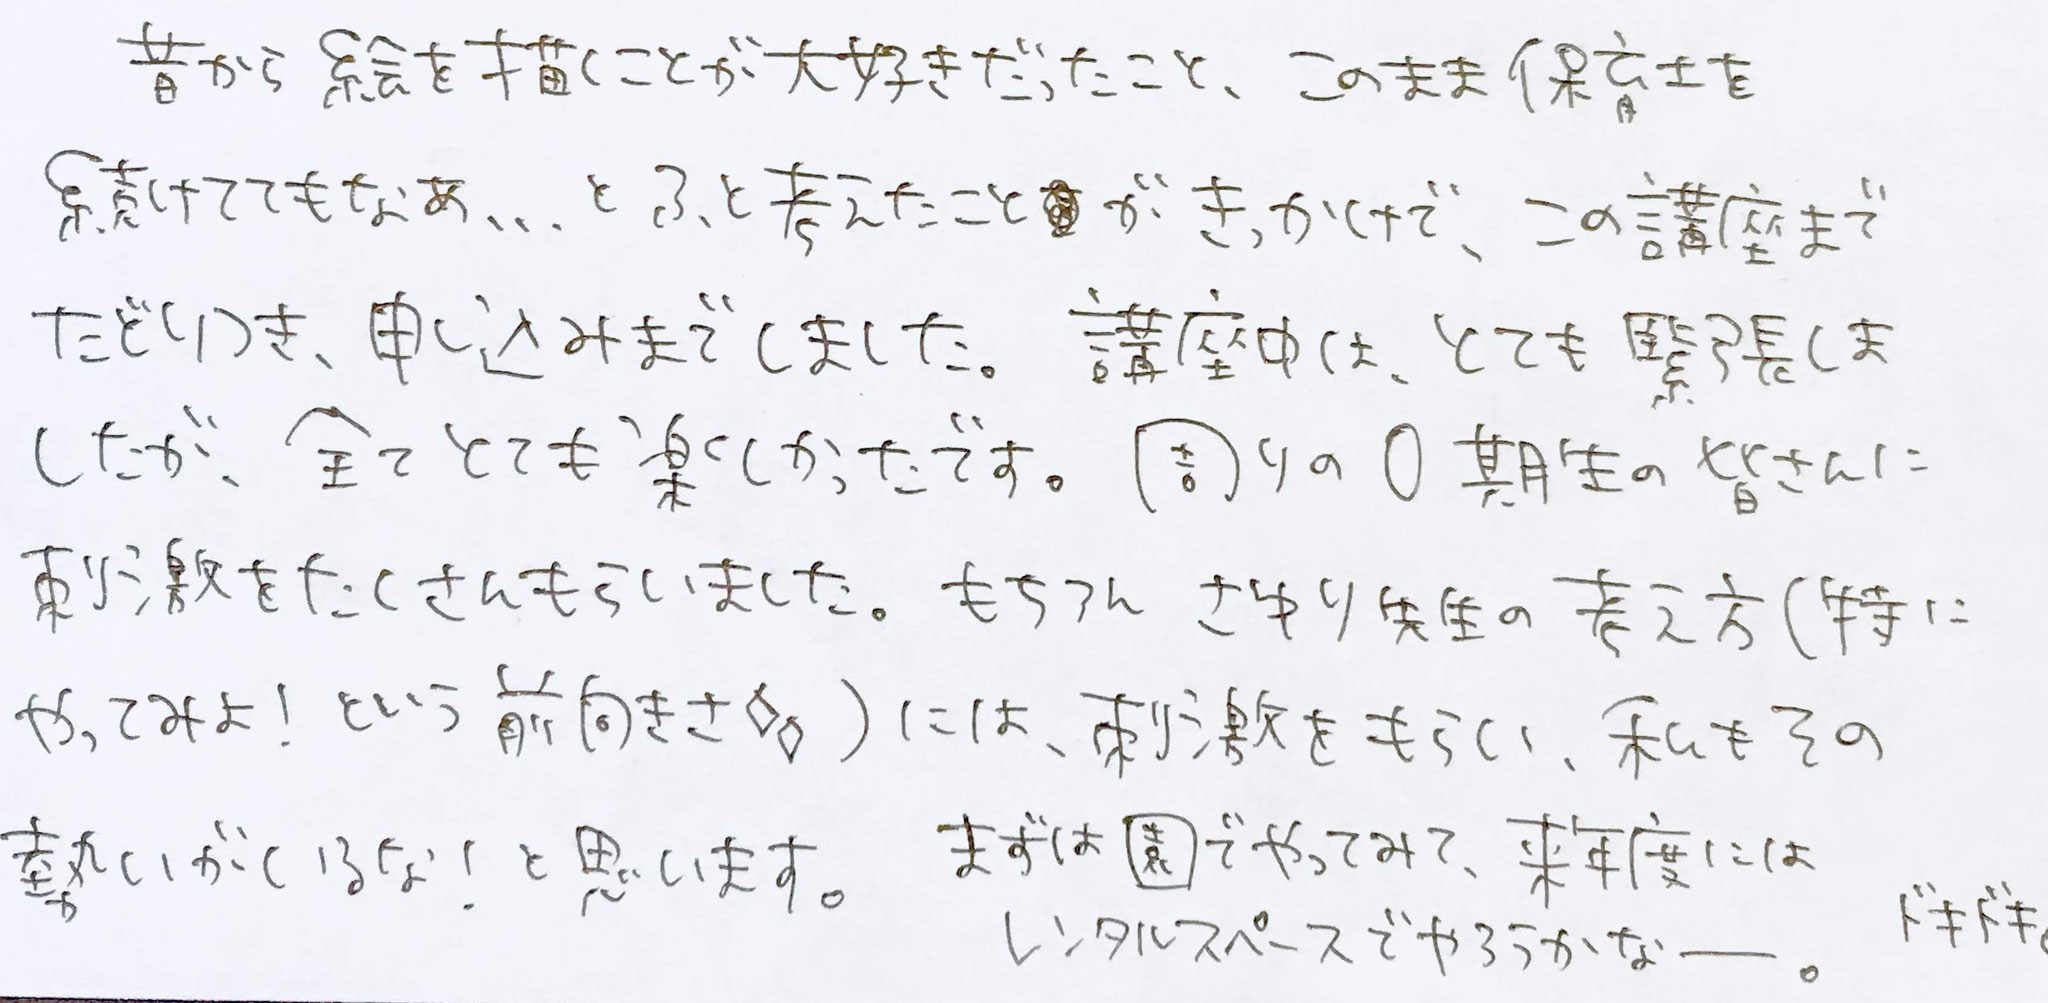 昔から絵を描くことが大好きだったこと、このまま保育士を
続けててもなぁ...とふと考えたことがきっかけで、この講座まで
たどりつき、申し込みまでしました。講座中は、とても緊張しま
したが、全てとても楽しかったです。周りの0期生の皆さんに
刺激をたくさんもらいました。もちろんさゆり先生の考え方(特に
やってみよ!という前向きさ◇◇)には、刺激をもらい、私もその
勢いがいるな!と思います。まずは園でやってみて、来年度には
レンタルスペースでやろうかなー。ドキドキ。